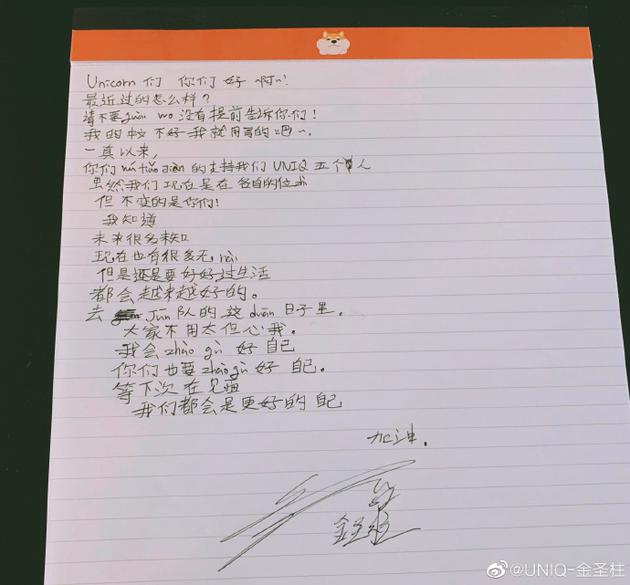 Unicorn 们 你们 好 啊~!
最近过的怎么样?
请不要guài wo 没有提前告诉你们!
我的中文 不好 我就 用写的 吧 ~.
一真以来,
你们 wú tiáo jiàn 的支持我们 UNIQ 五个人
虽然我们 现在 是在 各自的位
但 不变的是你们!
我知道
未来很多未知
现在也有很多无
但是还是要好好过生活
都会越来越好的。
去 Jūn 队的 这 duàn 日子里.
大家不用太但心我。
我会 zhào gù 好 自己
你们也要 zhào gù 好 自己.
等下次在见面
我们都会是更好的 自己
加油.
金圣柱
@UNIQ-金圣柱